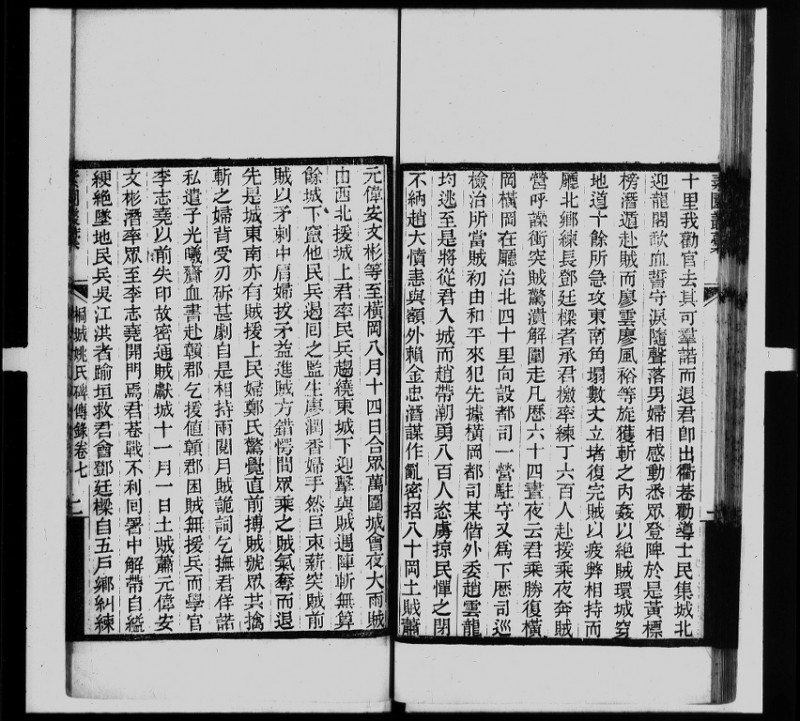 十里我勸官去其可羣諾而退君卽出衢巷勸導士民集城北
迎龍閣歃血誓守淚隨聲落男婦相感動悉眾登陴於是黃標
榜潛遁赴賊而廖雲廖風裕等旋獲斬之內姦以絕賊環城穿
地道十餘所急攻東南角塌數丈立堵復完賊以疲弊相持而
廳北鄉練長鄧廷樑者承君檄率練丁六百人赴援乘夜奔賊
營呼譟衝突賊驚潰解圍走凡歷六十四晝夜云君乘勝復橫
岡橫岡在廳治北四十里向設都司一營駐守又為下歷司巡
檢治所當賊初由和平來犯先據橫岡都司某偕外委趙雲龍
均逃至是將從君入城而趙帶潮勇八百人恣虜掠民憚之閉
不納趙大憤恚與額外賴金忠潛謀作亂密招八十岡土賊蕭
元偉安文彬等至橫岡八月十四日合眾萬圍城會夜大雨賊
由西北援城上君率民兵趨繞東城下迎擊與賊遇陣斬無算
餘城下竄他民兵遏同之監生廖潤香婦手然巨束薪突賊前
賊以矛刺中肩婦拔矛益進賊方錯愕間眾乘之賊氣奪而退
先是城東南亦有賊援上民婦鄭氏驚覺直前搏賊號眾共擒
斬之婦背受刃斫甚劇自是相持兩閱月賊詭詞乞撫君佯諾
私遣子光曦齎血書赴贛郡乞援值贛郡困賊無援兵而學官
李志堯以前失印故密通賊獻城十一月一日土賊蕭元偉安
文彬潛率眾至李志堯開門焉君巷戰不利回署中解帶自縊
綆絕墜地民兵吳江洪者踰垣救君會鄧廷樑自五戶鄉糾練
桐城姚氏碑傳錄卷七
二